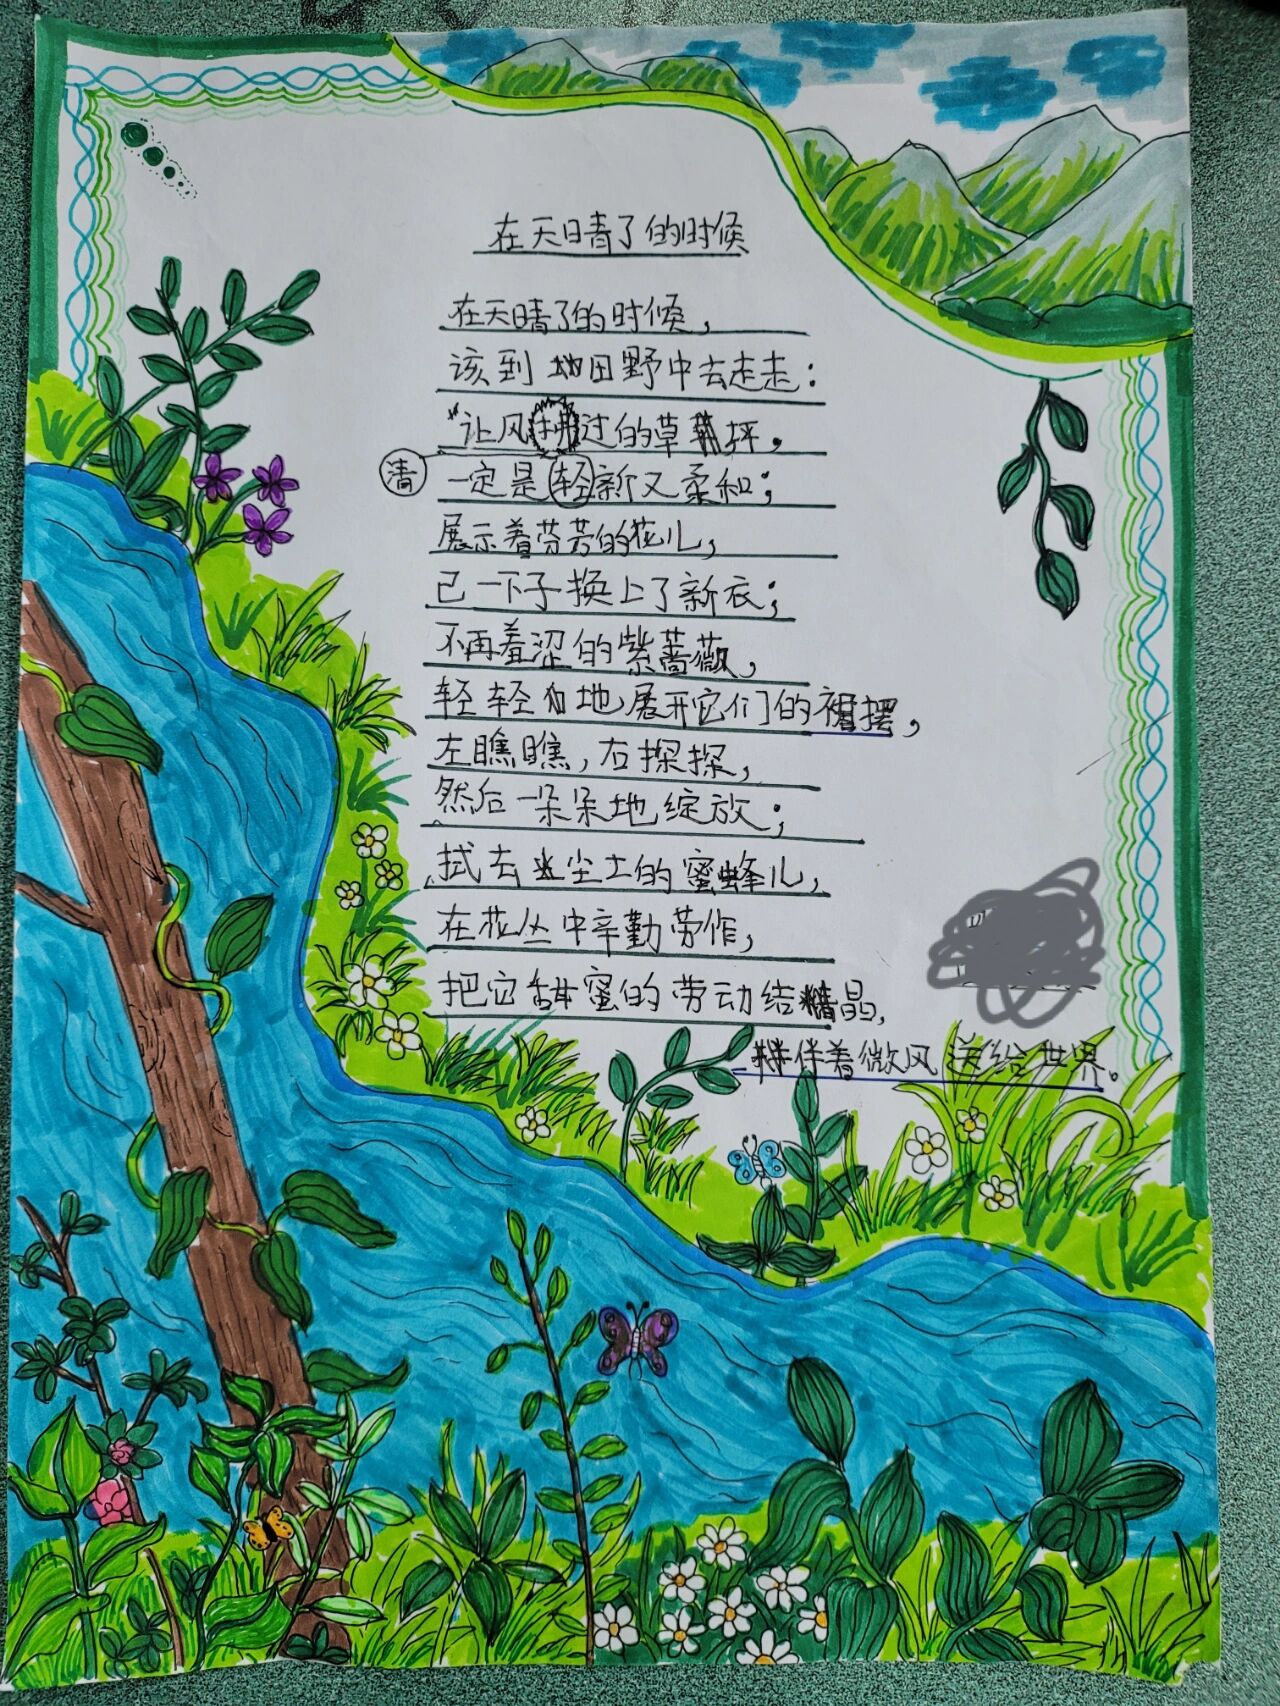 在天晴了的时候
在天晴了的时候，
该到田野中去走走：
“让风拂过的草坪，
清
一定是轻新又柔和；
展示着芬芳的花儿，
已一下子换上了新衣；
不再羞涩的紫蔷薇，
轻轻地展开它们的裙摆，
左瞧瞧，右探探，
然后一朵朵地绽放；
拭去尘土的蜜蜂儿，
在花丛中辛勤劳作，
把它甜蜜的劳动结晶，
伴着微风送给世界。